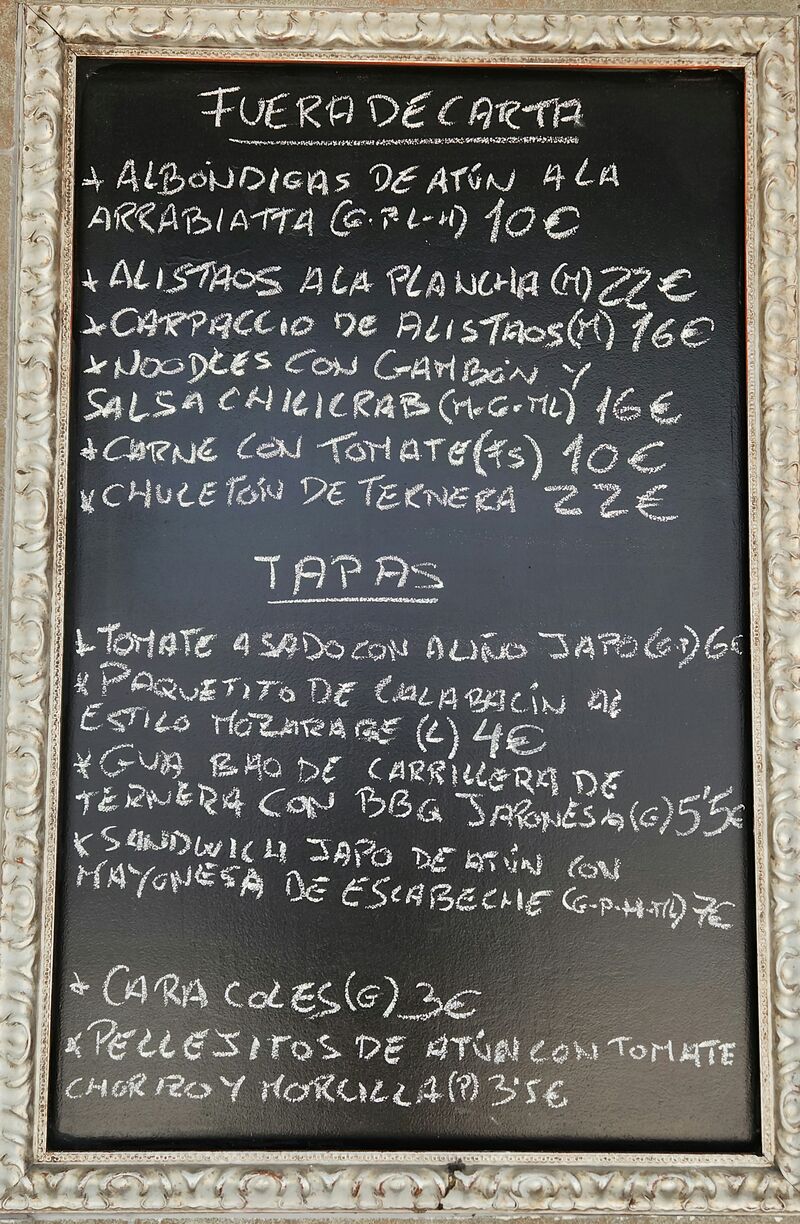 FUERA DE CARTA
* ALBÓNDIGAS DE ATÚN A LA
ARRABIATTA (G-P-L-H) 10€
* ALISTAOS A LA PLANCHA (M) 22€
* CARPACCIO DE ALISTAOS (M) 16€
* NOODLES CON GAMBÓN Y
SALSA CHILICRAB (M-G-ML) 16€
* CARNE CON TOMATE (FS) 10€
* CHULETÓN DE TERNERA 22€
TAPAS
* TOMATE ASADO CON ALIÑO JAPO (G-P) 6€
* PAQUETITO DE CALABACÍN AL
ESTILO MOZARABE (L) 4€
* GUA BAO DE CARRILLERA DE
TERNERA CON BBQ JAPONESA (G) 5'5€
* SANDWICH JAPO DE ATÚN CON
MAYONESA DE ESCABECHE (G-P-H-ML) 7€
* CARACOLES (G) 3€
* PELLEJITOS DE ATÚN CON TOMATE
CHORIZO Y MORCILLA (P) 3'5€